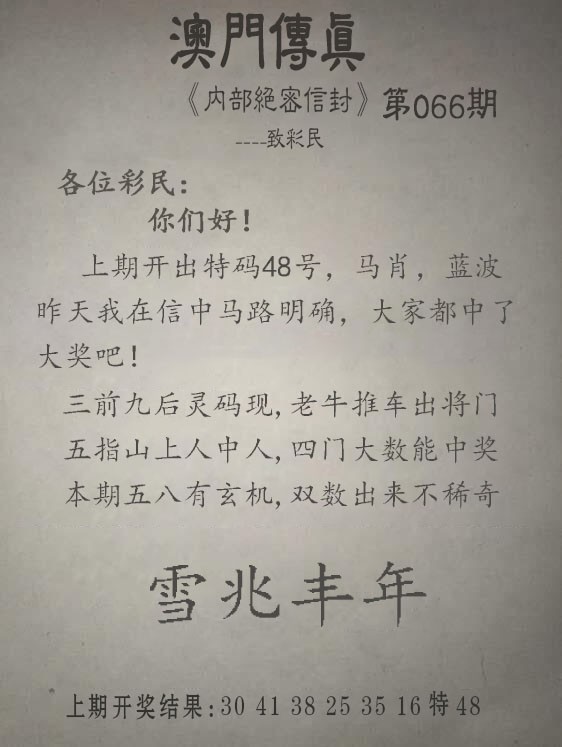 澳門傳眞
《内部絕密信封》第066期
----致彩民
各位彩民：
你们好！
上期开出特码48号，马肖，蓝波
昨天我在信中马路明确，大家都中了
大奖吧！
三前九后灵码现,老牛推车出将门
五指山上人中人,四门大数能中奖
本期五八有玄机,双数出来不稀奇
雪兆丰年
上期开奖结果:30 41 38 25 35 16 特 48